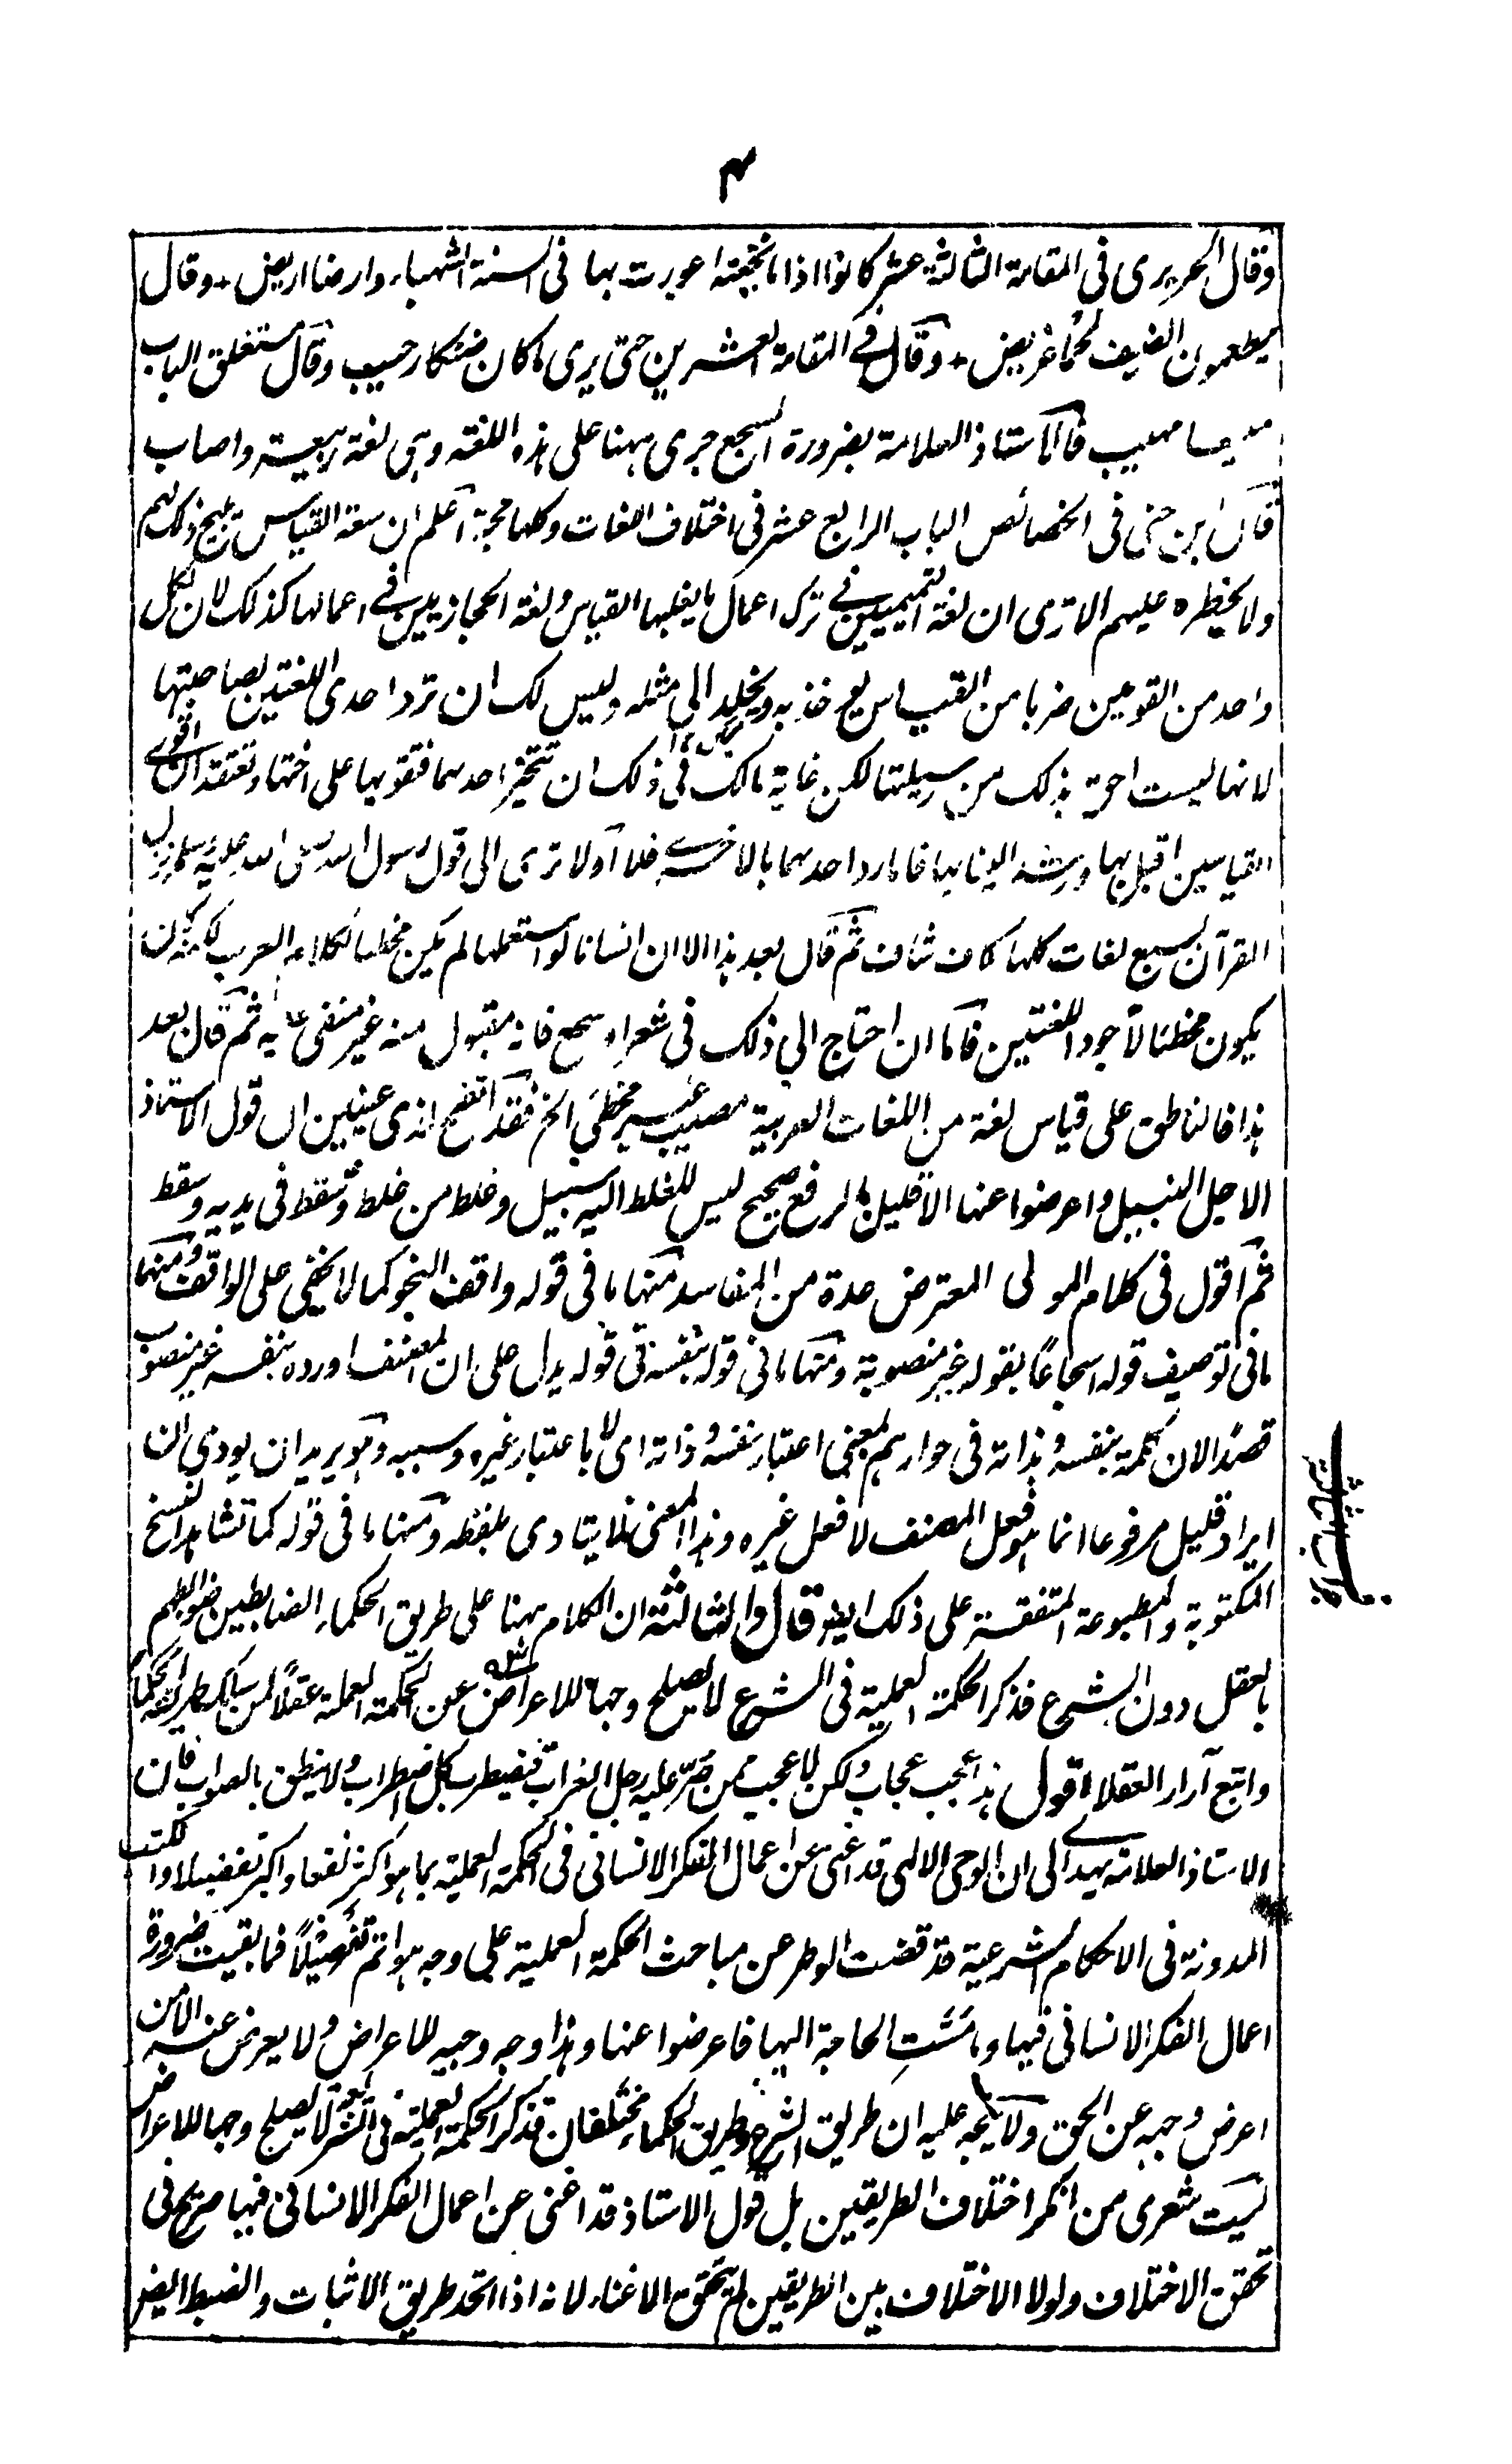 ۴
وقال الحريرى فى المقامة الثالثة عشر كانوا اذا ما نجعة اعوزت بها فى السنة الشهباء وارضا اريض + وقال
يطعمون الضيف لحما غريض + وقال فى المقامة العشرين حتى يرى ما كان ضنكا رحيب وقال مستغلق الباب
منيعا مهيب فالاستاذ العلامة بضرورة السجع جرى ههنا على هذه اللغة وهى لغة ربيعة واصاب
قال ابن جنى فى الخصائص الباب الرابع عشر فى اختلاف اللغات وكلها حجة اعلم ان سعة القياس تبيح ذلك لهم
ولا يحظره عليهم الا ترى ان لغة التميميين فى ترك اعمال ما يقبلها القياس ولغة الحجازيين فى اعمالها كذلك لان لكل
واحد من القومين ضربا من القياس يؤخذ به ويخلد الى مثله وليس لك ان ترد احدى اللغتين بصاحبتها
لانها ليست احق بذلك من رسيلتها لكن غاية مالك فى ذلك ان تتخير احدهما فتقويها على اختها وتعتقد ان اقوى
القياسين اقبل بها واشد انسا بها فاما رد احدهما بالاخرى فلا اولا ترى الى قول رسول الله صلى الله عليه وسلم نزل
القرآن بسبع لغات كلها كاف شاف ثم قال بعد هذا الا ان انسانا لو استعملها لم يكن مخطيا لكلام العرب لكنه كان
يكون مخطئا لاجود اللغتين فاما ان احتاج الى ذلك فى شعر او سجع فانه مقبول منه غير منعى عليه ثم قال بعد
هذا فالناطق على قياس لغة من اللغات العربية مصيب غير مخطئ الخ فقد اتضح لذى عينين ان قول الاستاذ
الاجل النبيل واعرضوا عنها الا قليل بالرفع صحيح ليس للغلط اليه سبيل وغلط من غلط وسقط فى يديه وسقط
ثم اقول فى كلام المولى المعترض عدة من المفاسد منها ما فى قوله واقف النحو كما لا يخفى على الواقف ومنها
ما فى توصيف قوله اسجاعا بقوله غير منصوبة ومنها ما فى قوله بنفسه فى قوله يدل على ان المصنف اورده بنفسه غير منصوب
قصدا لان كلمة بنفسه وبذاته فى حوارهم بمعنى اعتبار نفسه وذاته اى لا باعتبار غيره وسببه وهو يريد ان يودى ان
ايراد قليل مرفوعا انما هو فعل المصنف لا فعل غيره وهذا المعنى لا يتادى بلفظه ومنها ما فى قوله كما تشاهد النسخ
المكتوبة والمطبوعة المتفقة على ذلك ايضا قال والثالثة ان الكلام ههنا على طريق الحكماء الضابطين ضوابطهم
بالعقل دون الشرع فذكر الحكمة العملية فى الشرع لا يصلح وجها للاعراض عن الحكمة العملية عقلا لمن سلك طريقة الحكماء
واتبع آراء العقلاء اقول هذا عجب عجاب ولكن لا عجب ممن صر عليه رجل الغراب فيضطرب كل اضطراب ولا ينطق بالصواب فان
الاستاذ العلامة يهدى الى ان الوحى الالهى قد اغنى عن اعمال الفكر الانسانى فى الحكمة العملية بما هو اكثر نفعا واكبر تفضيلا والكتب
المدونة فى الاحكام الشرعية قد قضت الوطر عن مباحث الحكمة العملية على وجه هو اتم تفصيلا فما بقيت ضرورة
اعمال الفكر الانسانى فيها وما مست الحاجة اليها فاعرضوا عنها وهذا وجه وجيه للاعراض ولا يعرض عنه الا من
اعرض وجهه عن الحق ولا يتجه عليه ان طريق الشرع وطريق الحكماء مختلفان فذكر الحكمة العملية فى الشريعة لا يصلح وجها للاعراض
ليت شعرى من انكر اختلاف الطريقين بل قول الاستاذ قد اغنى عن اعمال الفكر الانسانى فيها صريح فى
تحقق الاختلاف ولولا الاختلاف بين الطريقين لم يتحقق الاغناء لانه اذا اتحد طريق الاثبات والضبط ايضا